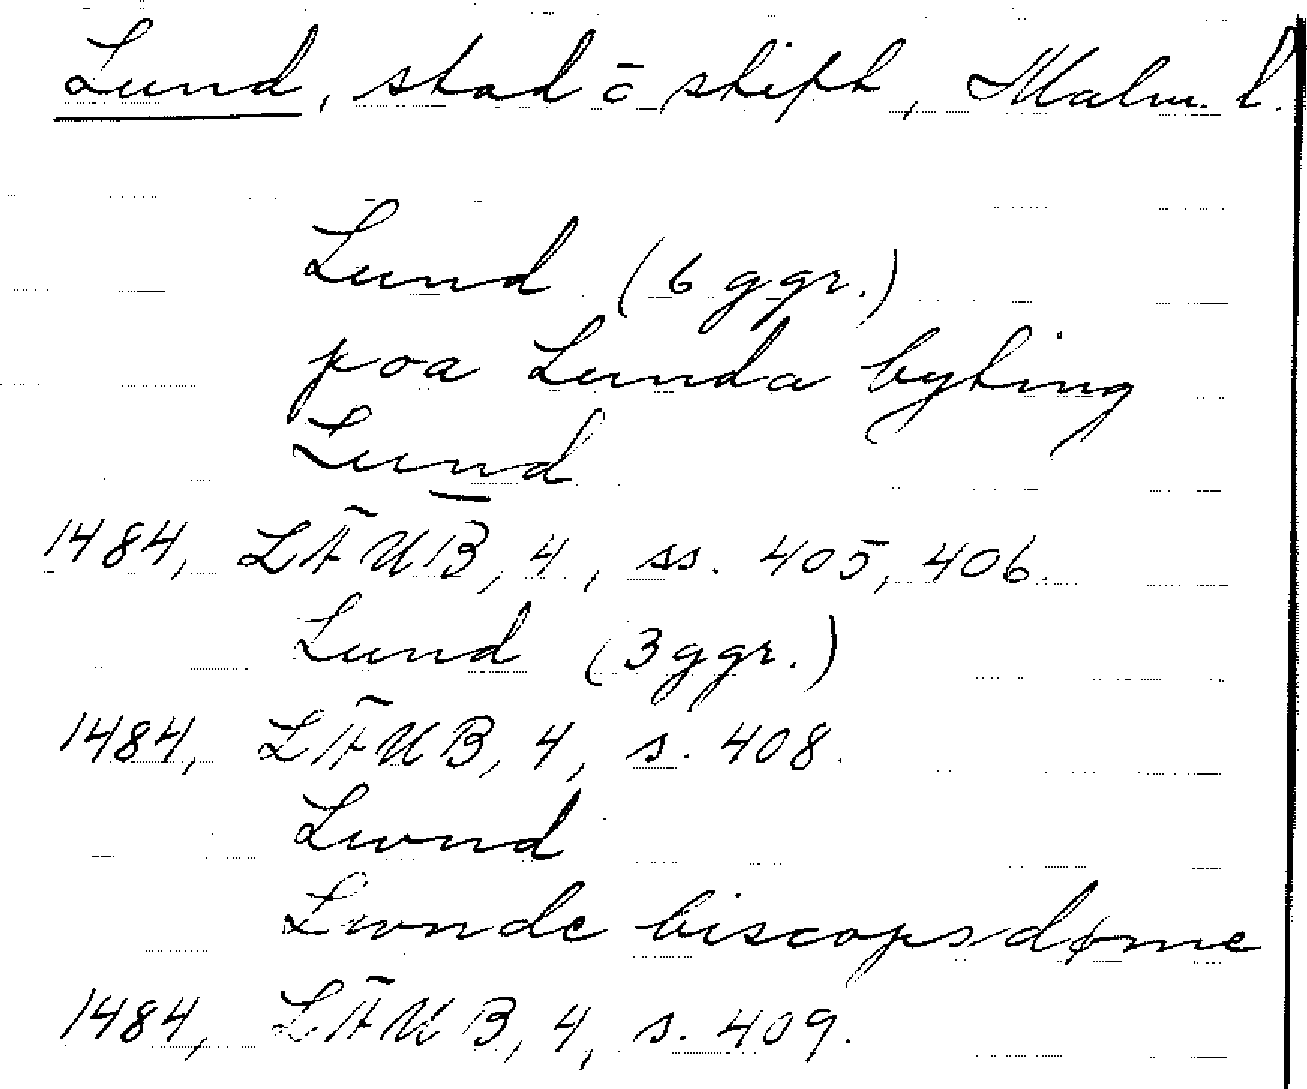 Lund, stad o stift, Malm. l.
Lund (6 ggr.)
poa Lunda byting
Lund
1484, LÄUB, 4, ss. 405, 406.
Lund (3 ggr.)
1484, LÄUB, 4, s. 408.
Lwnd
Lwnde biscopsdøme
1484, LÄUB, 4, s. 409.